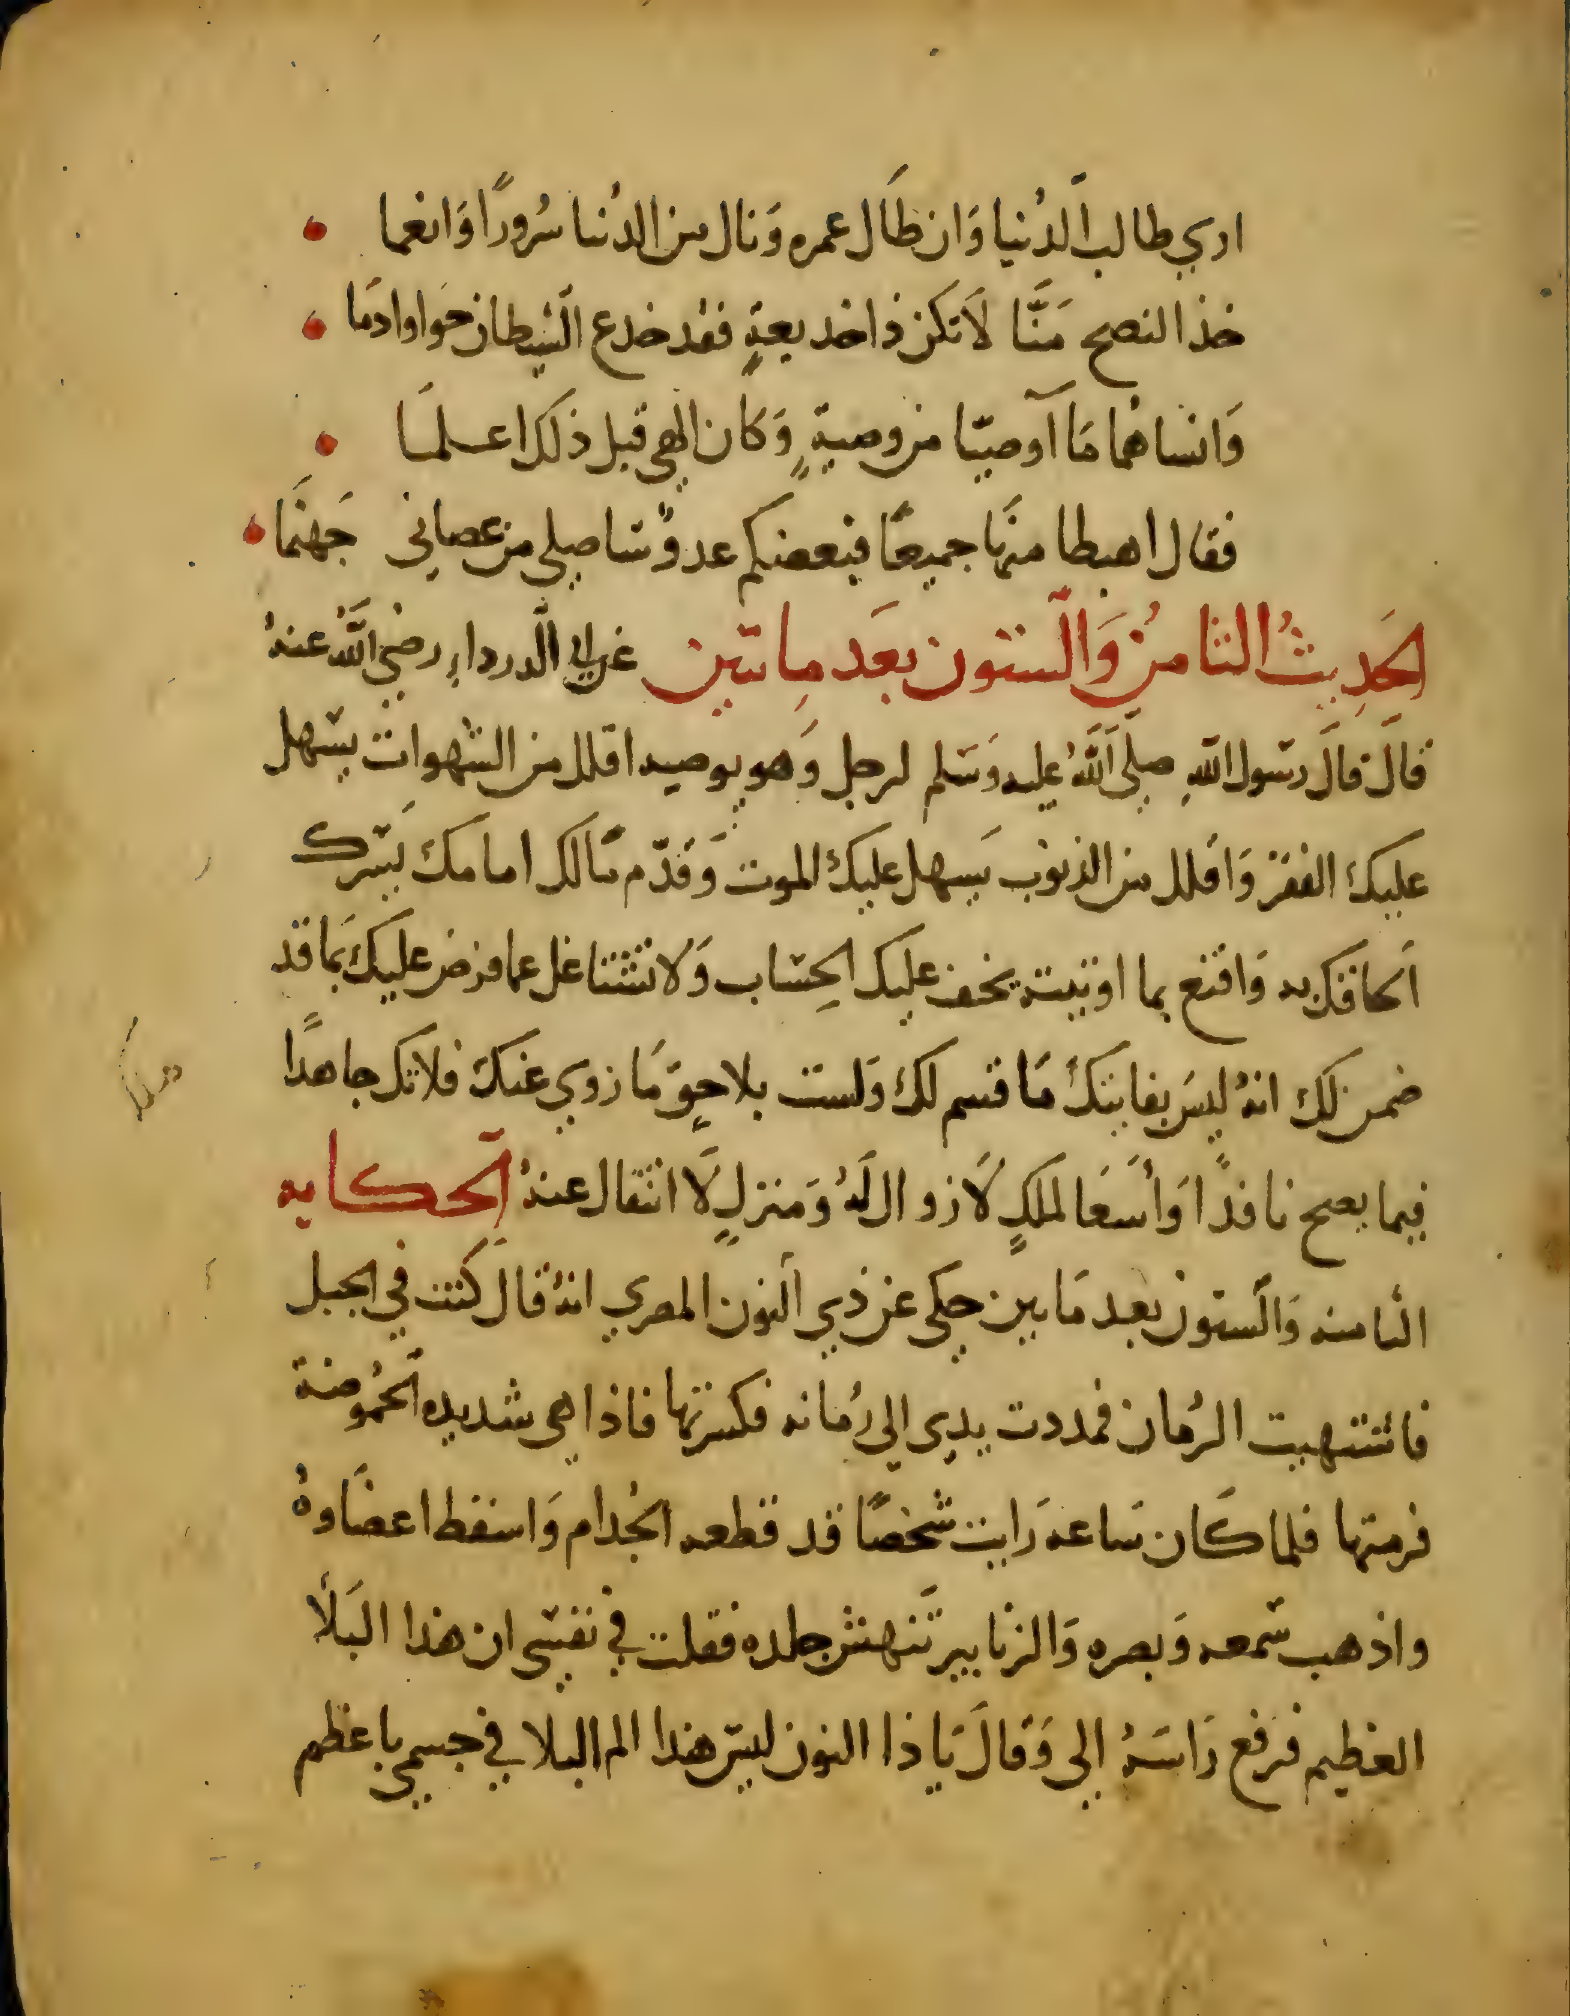 اري طالب الدُنيا وَان طَال عمره وَنال من الدُنيا سُرورًا وَانعما
خذ النصح مَنَّا لَا تكن ذا خديعةٍ فقد خدع الشيطان حَوا وادمَا
وَانساهُما مَا آوصيّا من وصيةٍ وَكان الهي قبل ذلك اعلمَا
فقال اهبطا منهَا جميعًا فبعضكم عدوٌ سَاصلي من عصاني جَهنَمَا
الحَدِيثُ الثامنُ وَالستون بَعَد مِاتين عن ابي الَدرداءِ رضي اَللَّهُ عنهُ
قَالَ قالَ رسُول اللهِ صلَّى اَللَّهُ عليه وَسَلم لرجل وَهو يوصيه اقلل من الشهوات يسهل
عليك الفقر وَاقلل من الذنوب يَسهل عليك الموت وَقدّم مَالك امامك يَسّرك
اَلحاقك به وَاقنع بما اوتيته يخف عليك الحِسَاب وَلا تتشاغل عما فرض عليك بمَا قد
ضمن لك انهُ ليسَ بفايتك مَا قسم لك وَلست بلاحقٍ مَا زوي عنك فلا تك جاهدًا
فيما يصبح نافدًا وَأسَعَا لملكٍ لَا زوال لَهُ وَمنزلٍ لَا انتقال عنهُ الحكايه
الثامنه وَالستون بعد مَايتين حكي عن ذي النون المصري انهُ قال كنت في الجبل
فاشتهيت الرُمان فمددت يدي الي رُمانه فكسرتها فاذا هي شديده الحُموضة
فرميتها فلما كَان سَاعه رَايت شخصًا قد قطعه الجُدام وَاسقط اعضَاوهُ
واذهب سَمعه وَبصره وَالزنابير تَنهش جلده فقلت في نفسي ان هذا البَلَا
العظيم فرَفع رَاسَهُ الي وَقالَ يَا ذا النون ليس هذا الم البلا في جسمي باعظم